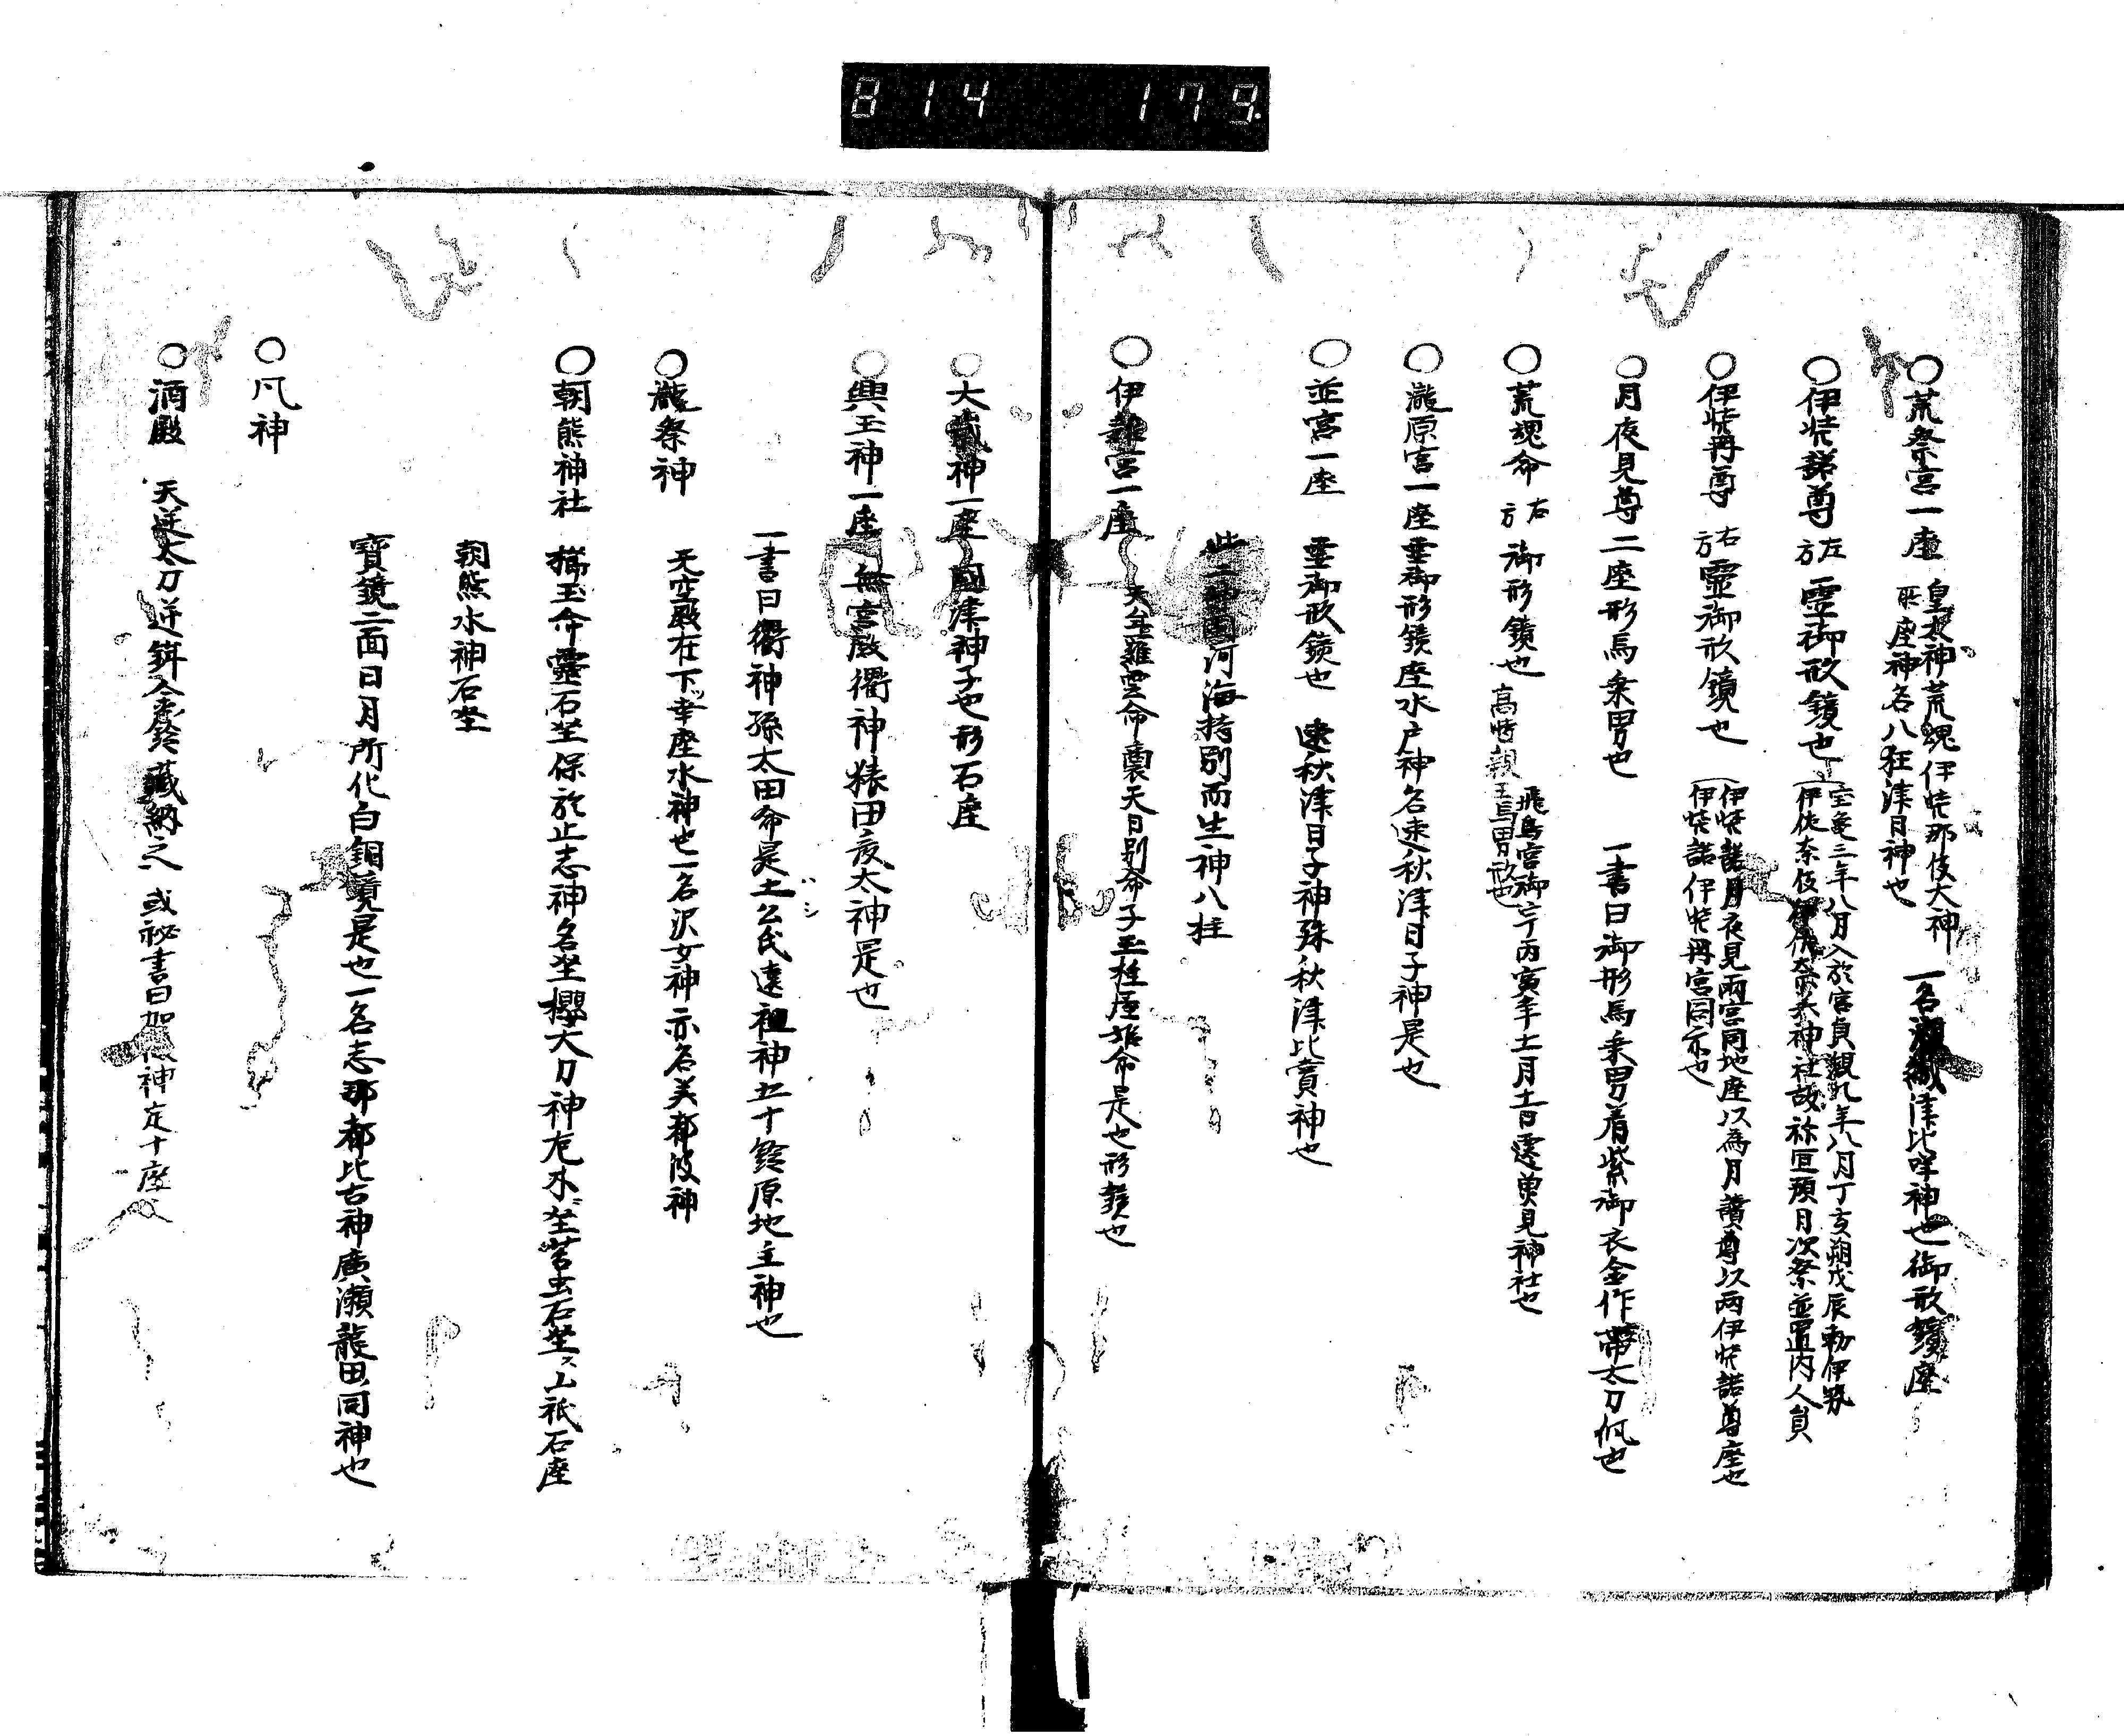 814 179
○荒祭宮一座 皇太神荒魂伊弉那伎大神
所座神名八狂津日神也
一名瀬織津比咩神也御形鏡座
○伊弉諾尊 左方 霊御形鏡也
宝亀三年八月入於官貞観九年八月丁亥朔戊辰勅伊勢
伊佐奈伎伊佐奈美神社改称宮預月次祭並置内人員
○伊弉冉尊 右方 霊御形鏡也
伊弉諾月夜見両宮同地座以為月讀尊以両伊弉諾尊座也
伊弉諾伊弉冉宮同示也
○月夜見尊二座形馬乗男也 一書曰御形馬乗男着紫御衣金作帯太刀佩也
○荒魂命 右方 御形鏡也 高 親王
飛鳥宮御宇丙寅年十一月十一日遷 見神社也
○瀧原宮一座霊御形鏡座水戸神名速秋津日子神是也
○並宮一座 霊御形鏡也 速秋津日子神殊秋津比賣神也
此二神因河海持別而生神八柱
○伊雜宮一座 天牟羅雲命裔天日別命子玉柱屋姫命是也形鏡也
○大歳神一座國津神子也形石座
○興玉神一座無宮殿衢神猿田彦大神是也
一書曰衢神孫太田命是土公氏遠祖神五十鈴原地主神也
○瀧祭神 无空殿在下 座水神也一名沢女神亦名美都波神
○朝熊神社 櫛玉命靈石坐保於止志神名坐櫻大刀神 坐苔虫石坐山祇石座
朝熊水神石坐
寶鏡二面日月所化白銅鏡是也一名志那都比古神廣瀬龍田同神也
○凡神
○酒殿 天逆太刀逆鉾金鈴藏納之 或秘書曰 神定十座